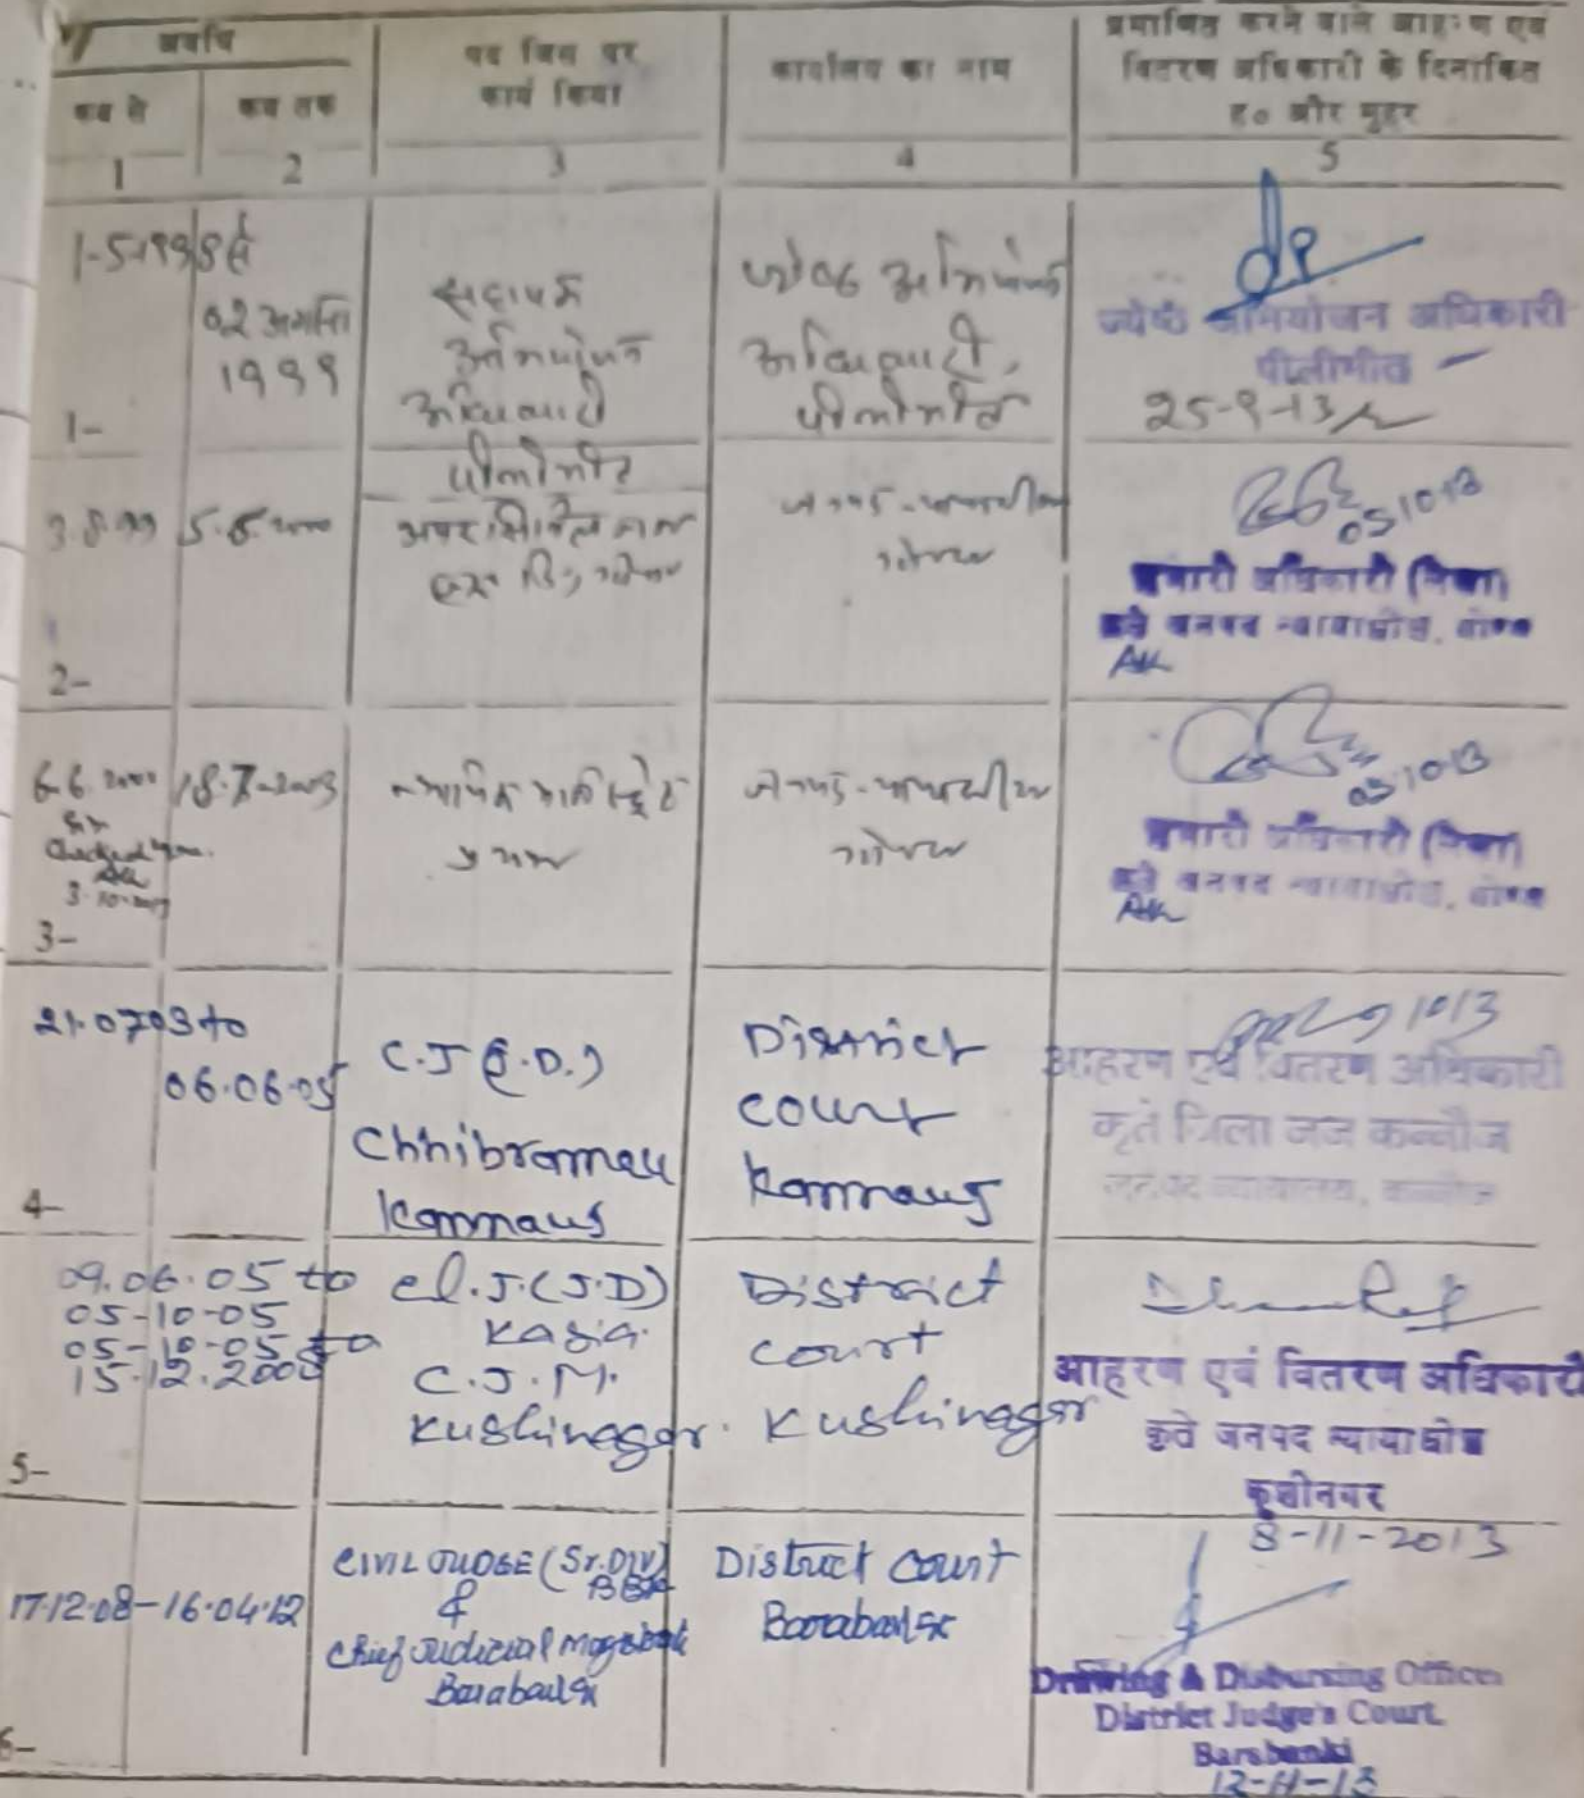 अवधि
पद जिस पर
कार्य किया
कार्यालय का नाम
प्रमाणित करने वाले आहरण एवं
वितरण अधिकारी के दिनांकित
ह० और मुहर
कब से
कब तक
1
2
3
4
5
1-5-1998 से
02 अगस्त
1999
सहायक
अभियोजन
अधिकारी
पीलीभीत
ज्येष्ठ अभियोजन
अधिकारी,
पीलीभीत
ज्येष्ठ अभियोजन अधिकारी
पीलीभीत
25-9-13
1-
3.8.99
अपर सिविल जज
05/10/13
प्रभारी अधिकारी
कृते जनपद न्यायाधीश,
2-
18.7.2003
न्यायिक मजिस्ट्रेट
प्रथम
05/10/13
प्रभारी अधिकारी
कृते जनपद न्यायाधीश,
3-
21.07.03 to
06.06.05
Chhibramau
Kannauj
District
Court
Kannauj
आहरण एवं वितरण अधिकारी
कृते जिला जज कन्नौज
4-
09.06.05 to
05-10-05
05-10-05 to
15.12.2008
Cl.J.(J.D)
Kasia.
C.J.M.
Kushinagar.
District
Court
Kushinagar
आहरण एवं वितरण अधिकारी
कृते जनपद न्यायाधीश
कुशीनगर
8-11-2013
5-
17.12.08-16.04.12
CIVIL JUDGE (Sr.DIV)
BBK
&
Chief Judicial Magistrate
Barabanki
District Court
Barabanki
Drawing & Disbursing Officer
District Judge's Court
Barabanki
12-11-13
6-